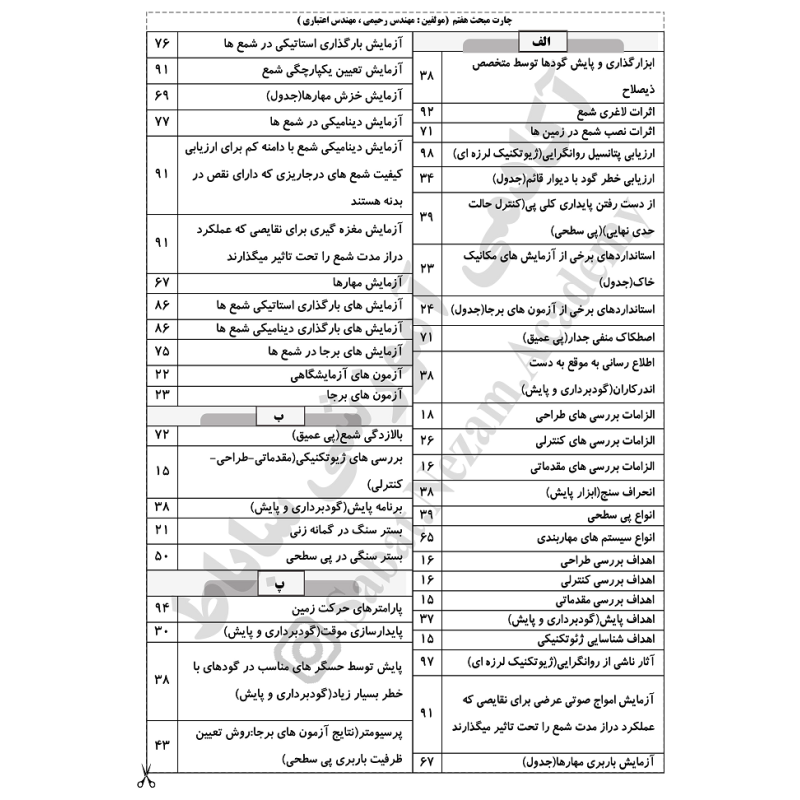 چارت مبحث هفتم (مولفین : مهندس رحیمی ، مهندس اعتباری )
الف
ابزارگذاری و پایش گودها توسط متخصص
ذیصلاح
۳۸
اثرات لاغری شمع ۹۲
اثرات نصب شمع در زمین ها ۷۱
ارزیابی پتانسیل روانگرایی(ژیوتکنیک لرزه ای) ۹۸
ارزیابی خطر گود با دیوار قائم(جدول) ۳۴
از دست رفتن پایداری کلی پی(کنترل حالت
حدی نهایی)(پی سطحی)
۳۹
استانداردهای برخی از آزمایش های مکانیک
خاک(جدول)
۲۳
استانداردهای برخی از آزمون های برجا(جدول) ۲۴
اصطکاک منفی جدار(پی عمیق) ۷۱
اطلاع رسانی به موقع به دست
اندرکاران(گودبرداری و پایش)
۳۸
الزامات بررسی های طراحی ۱۸
الزامات بررسی های کنترلی ۲۶
الزامات بررسی های مقدماتی ۱۶
انحراف سنج(ابزار پایش) ۳۸
انواع پی سطحی ۳۹
انواع سیستم های مهاربندی ۶۵
اهداف بررسی طراحی ۱۶
اهداف بررسی کنترلی ۱۶
اهداف بررسی مقدماتی ۱۵
اهداف پایش(گودبرداری و پایش) ۳۷
اهداف شناسایی ژئوتکنیکی ۱۵
آثار ناشی از روانگرایی(ژیوتکنیک لرزه ای) ۹۷
آزمایش امواج صوتی عرضی برای نقایصی که
عملکرد دراز مدت شمع را تحت تاثیر میگذارند
۹۱
آزمایش باربری مهارها(جدول) ۶۷
آزمایش بارگذاری استاتیکی در شمع ها ۷۶
آزمایش تعیین یکپارچگی شمع ۹۱
آزمایش خزش مهارها(جدول) ۶۹
آزمایش دینامیکی در شمع ها ۷۷
آزمایش دینامیکی شمع با دامنه کم برای ارزیابی
کیفیت شمع های درجاریزی که دارای نقص در
بدنه هستند
۹۱
آزمایش مغزه گیری برای نقایصی که عملکرد
دراز مدت شمع را تحت تاثیر میگذارند
۹۱
آزمایش مهارها ۶۷
آزمایش های بارگذاری استاتیکی شمع ها ۸۶
آزمایش های بارگذاری دینامیکی شمع ها ۸۶
آزمایش های برجا در شمع ها ۷۵
آزمون های آزمایشگاهی ۲۲
آزمون های برجا ۲۳
ب
بالازدگی شمع(پی عمیق) ۷۲
بررسی های ژیوتکنیکی(مقدماتی-طراحی-
کنترلی)
۱۵
برنامه پایش(گودبرداری و پایش) ۳۸
بستر سنگ در گمانه زنی ۲۱
بستر سنگی در پی سطحی ۵۰
پ
پارامترهای حرکت زمین ۹۴
پایدارسازی موقت(گودبرداری و پایش) ۳۰
پایش توسط حسگر های مناسب در گودهای با
خطر بسیار زیاد(گودبرداری و پایش)
۳۸
پرسیومتر(نتایج آزمون های برجا:روش تعیین
ظرفیت باربری پی سطحی)
۴۳
آکادمی آموزشی ساباط
Sabat.Nezam.Academy